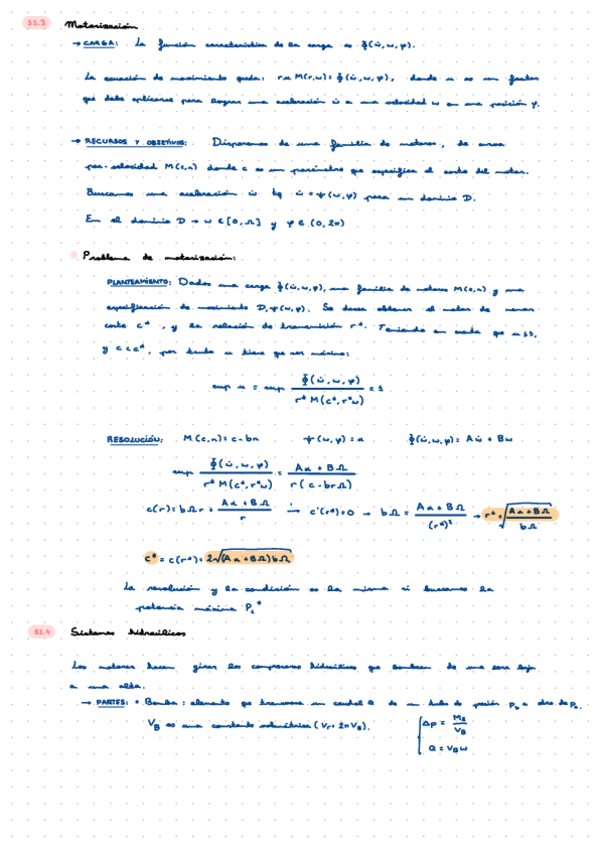 11.3 Motorización
→ CARGA: La función característica de la carga es Φ(ω̇, ω, φ).
La ecuación de movimiento queda: r u M(r, ω) = Φ(ω̇, ω, φ), donde u es un factor
que debe aplicarse para lograr una aceleración ω̇ a una velocidad ω en una posición φ.
→ RECURSOS Y OBJETIVOS: Disponemos de una familia de motores, de curva
par-velocidad M(c,n) donde c es un parámetro que especifica el coste del motor.
Buscamos una aceleración ω̇ tq ω̇ = ψ(ω, φ) para un dominio D.
En el dominio D → ω ∈ [0, Ω] y φ ∈ (0, 2π)
• Problema de motorización:
PLANTEAMIENTO: Dados una carga Φ(ω̇, ω, φ), una familia de motores M(c,n) y una
especificación de movimiento D, ψ(ω, φ). Se desea obtener el motor de menor
coste c*, y la relación de transmisión r*. Teniendo en cuenta que u ≤ 1,
y c < c*, por tanto u tiene que ser máximo:
sup u = sup Φ(ω̇, ω, φ) / r* M(c*, r*ω) = 1
RESOLUCIÓN: M(c,n) = c - bn ψ(ω, φ) = α Φ(ω̇, ω, φ) = Aω̇ + Bω
sup Φ(ω̇, ω, φ) / r* M(c*, r*ω) = Aα + BΩ / r(c - brΩ)
c(r) = bΩr + Aα + BΩ / r → c'(r*) = 0 → bΩ = Aα + BΩ / (r*)² → r* = √(Aα + BΩ / bΩ)
c* = c(r*) = 2√((Aα + BΩ)bΩ)
La resolución y la condición es la misma si buscamos la
potencia máxima
11.4 Sistemas hidraúlicos
Los motores hacen girar los compresores hidraúlicos que bombean de una zona baja
a una alta.
→ PARTES: • Bomba: elemento que transvasa un caudal Q de un tubo de presión a otro de
V_B es una constante volumétrica (V_r = 2π V_B). Δp = M_B / V_B
Q = V_B ω